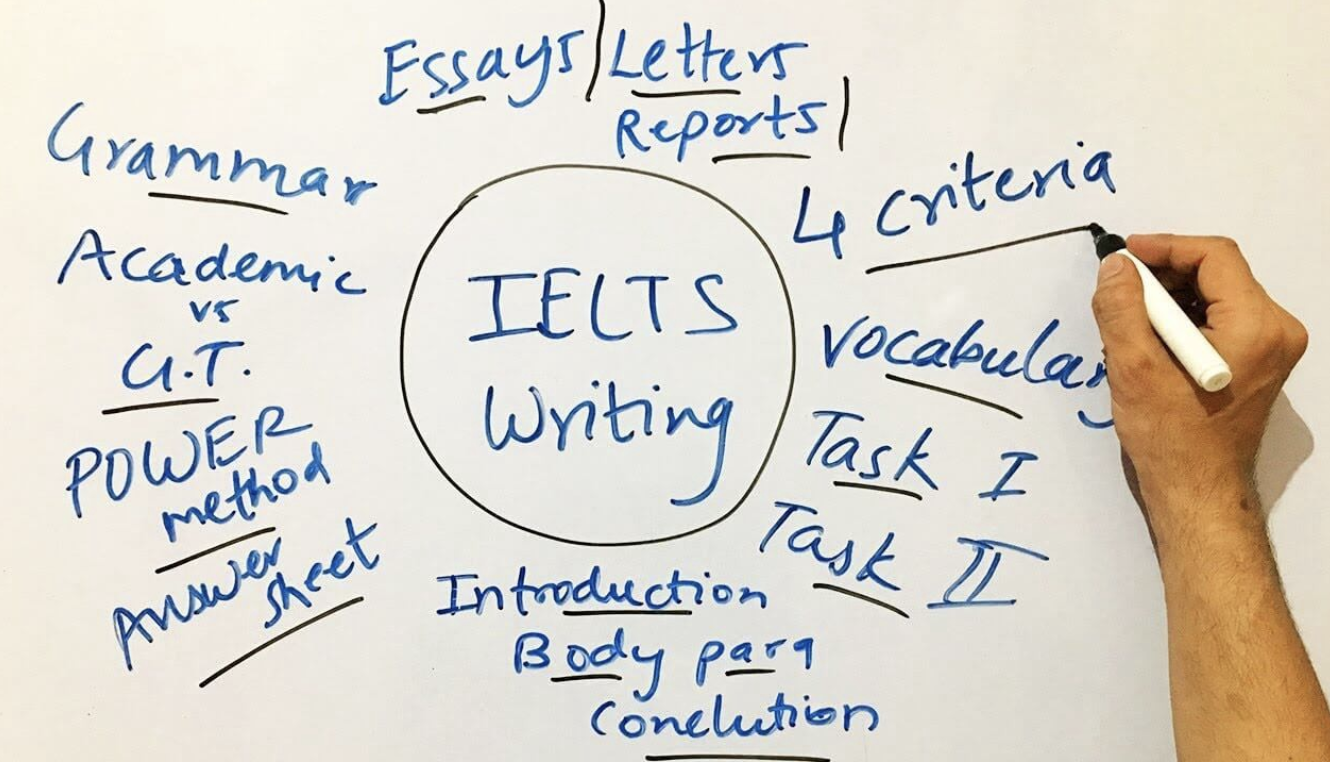 Essays | Letters
Reports |
Grammar
4 criteria
Academic
vs
G.T.
IELTS
Writing
vocabulary
POWER
method
Task I
Answer
sheet
Task II
Introduction
Body para
Conclution